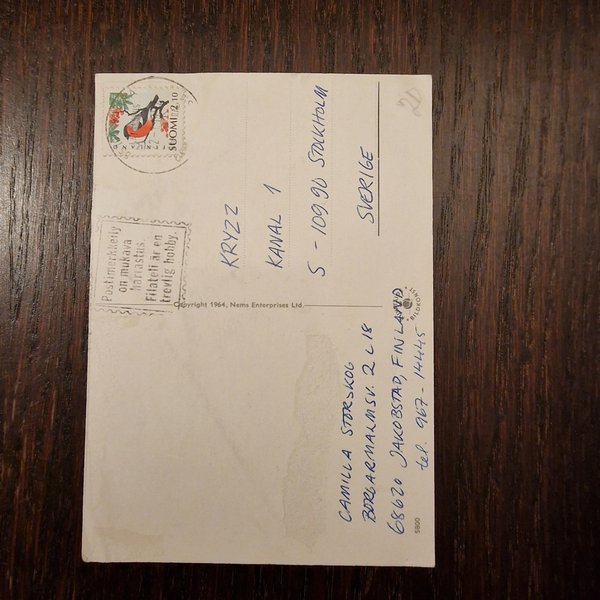 SUOMI 2.10
FINLAND
Postimerkkeily
on mukava
harrastus.
Filateli är en
trevlig hobby.
20
KRYZZ
KANAL 1
S-109.90 STOCKHOLM
SVERIGE
Copyright 1964, Nems Enterprises Ltd.
CAMILLA STORSKOG
BORGARMALMSV. 2 L 18
68620 JAKOBSTAD, FINLAND
tel. 967-14445
5800